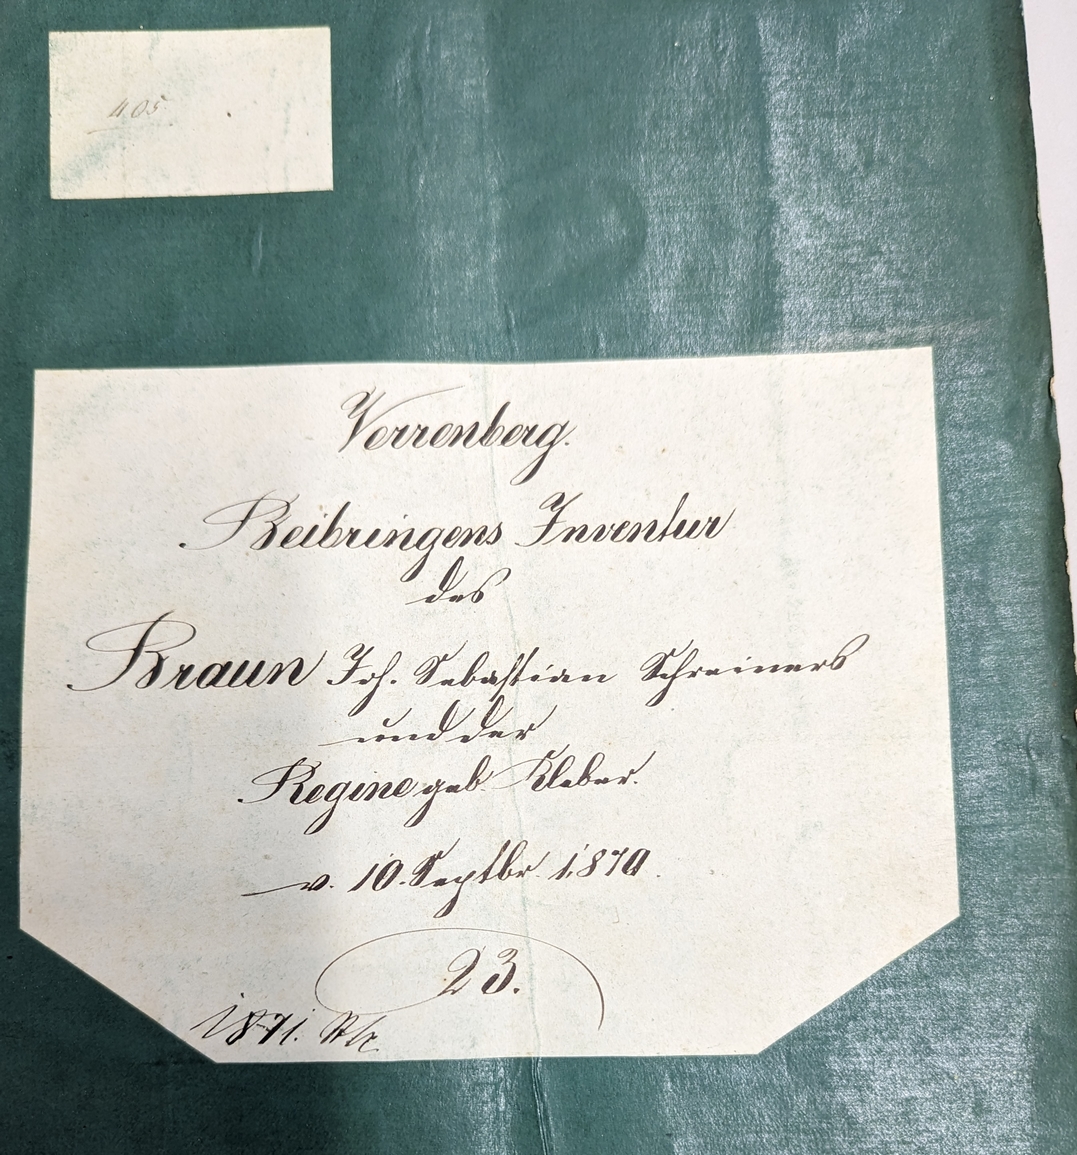 405
Verrenberg.
Beibringens Inventur
des
Braun Joh. Sebastian Schreiners
und der
Regine geb. Kleber.
v. 10. Septbr. 1870.
23.
1871.